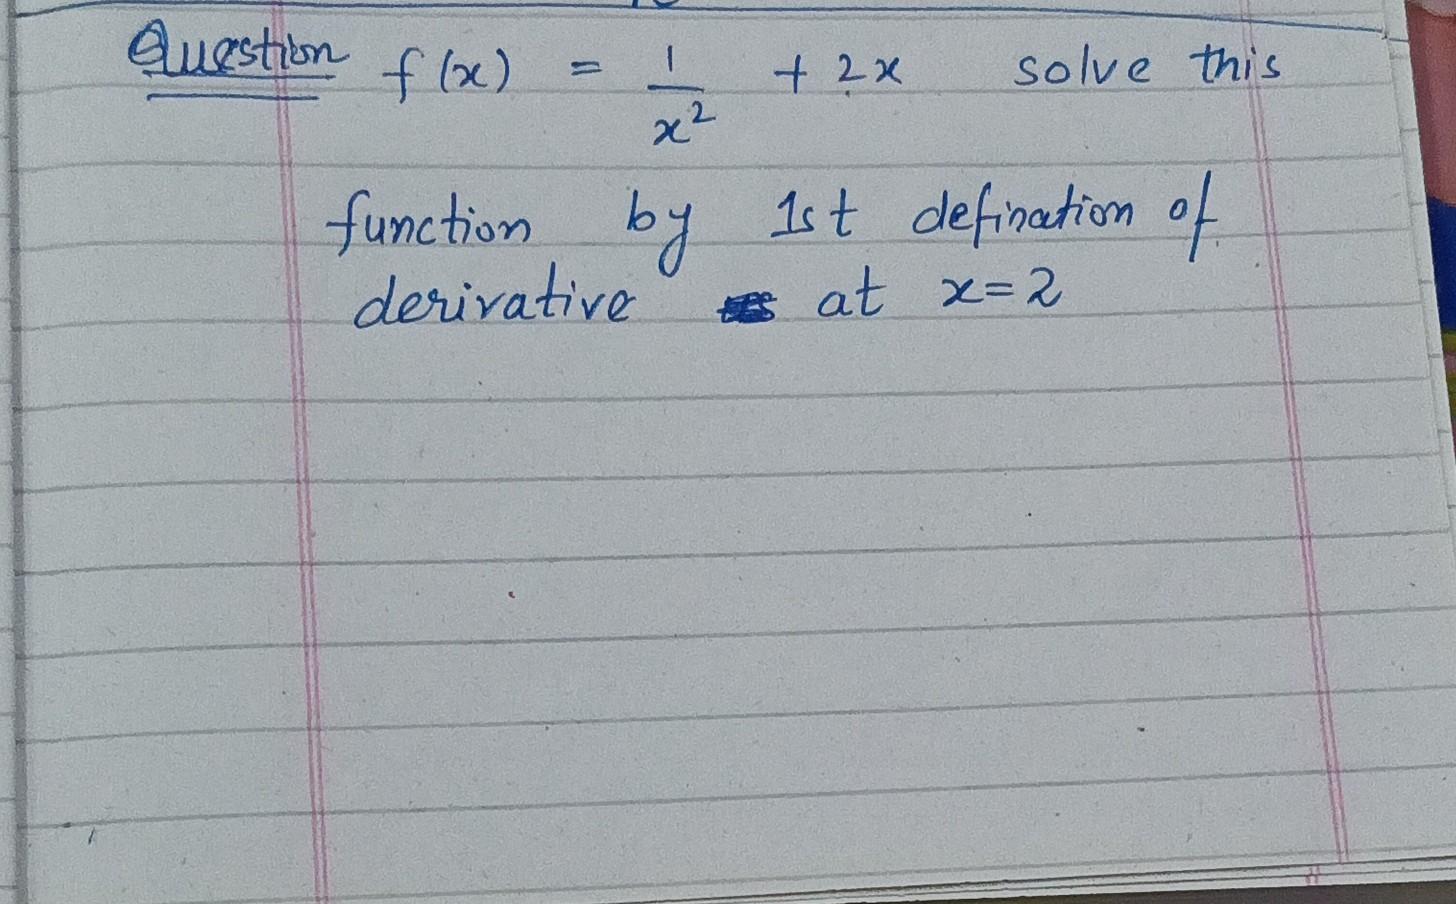 Question f(x) = 1/x² + 2x solve this
function by 1st defination of
derivative at x=2